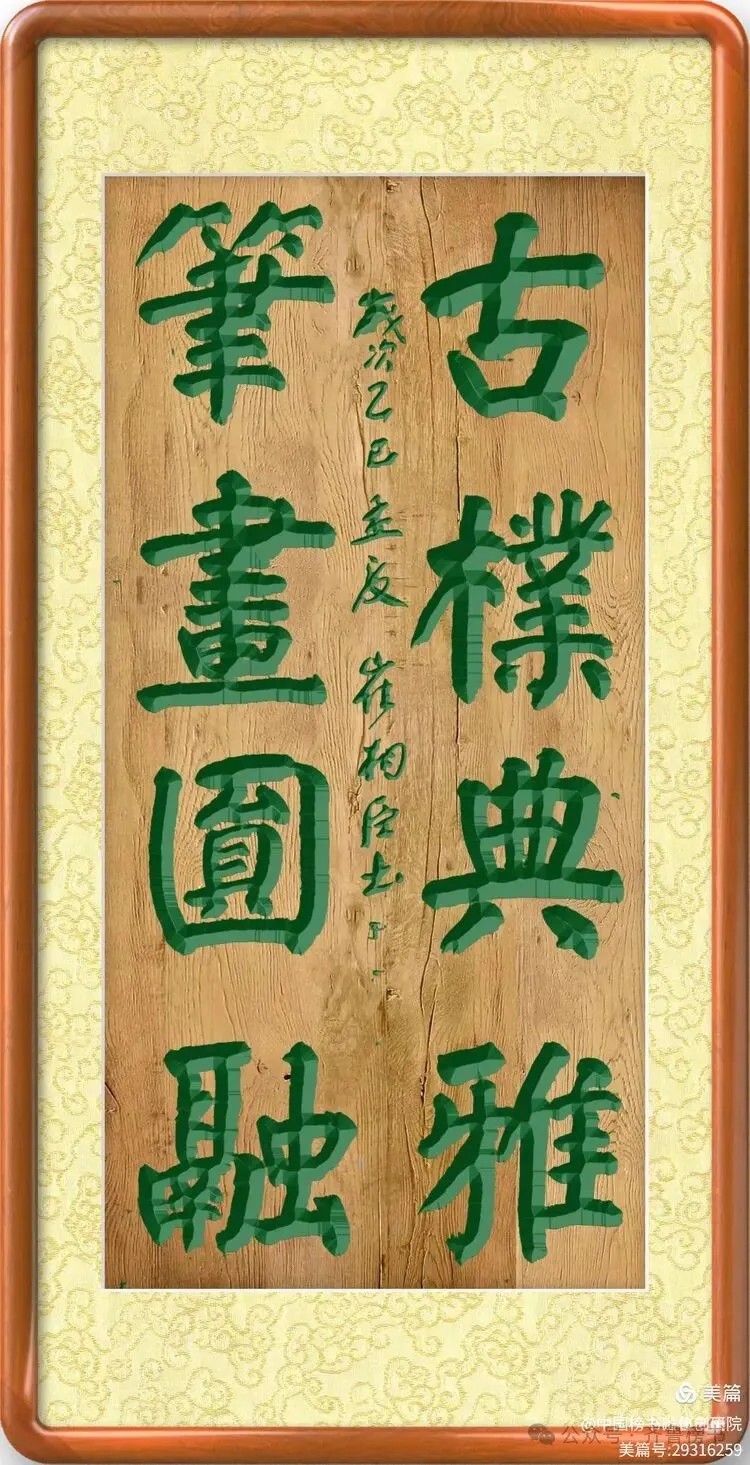 古樸典雅
歲次乙巳孟夏 崔相臣書
筆畫圓融
美篇
@中国榜书
公众号·齐鲁榜书
美篇号:29316259